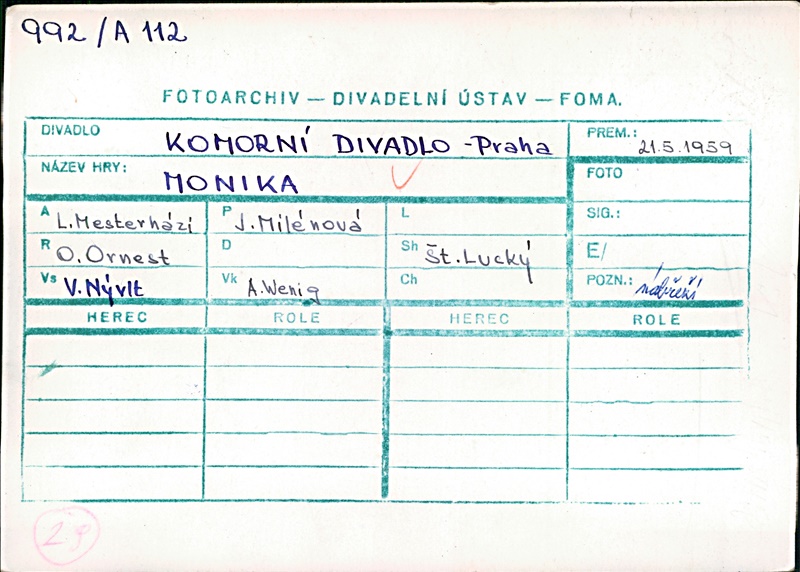 992/A 112
FOTOARCHIV — DIVADELNÍ ÚSTAV — FOMA.
DIVADLO KOMORNÍ DIVADLO - Praha PREM.: 21.5.1959
NÁZEV HRY: MONIKA FOTO
A L. Mesterházi P J. Milénová L SIG.:
R O. Ornest D Sh Št. Lucký E/
Vs V. Nývlt Vk A. Wenig Ch POZN.: nábřeží
HEREC ROLE HEREC ROLE
29